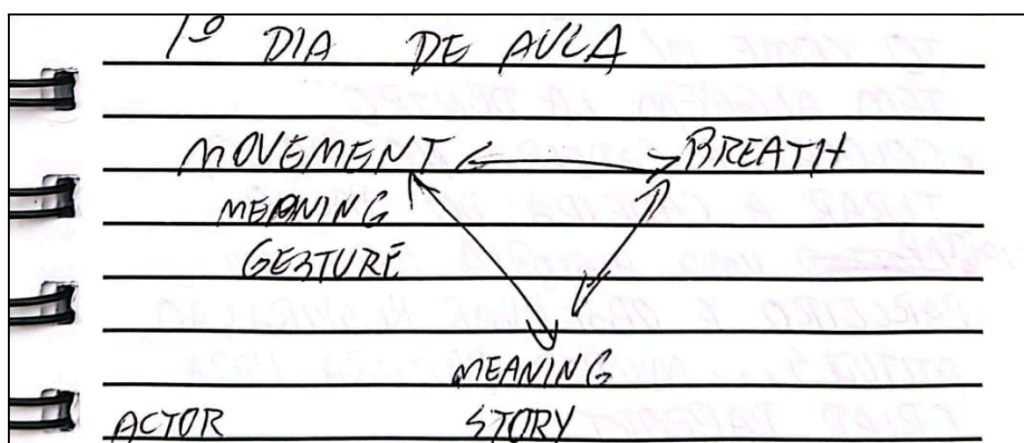 1º DIA DE AULA
MOVEMENT BREATH
MEANING
GESTURE
MEANING
ACTOR STORY